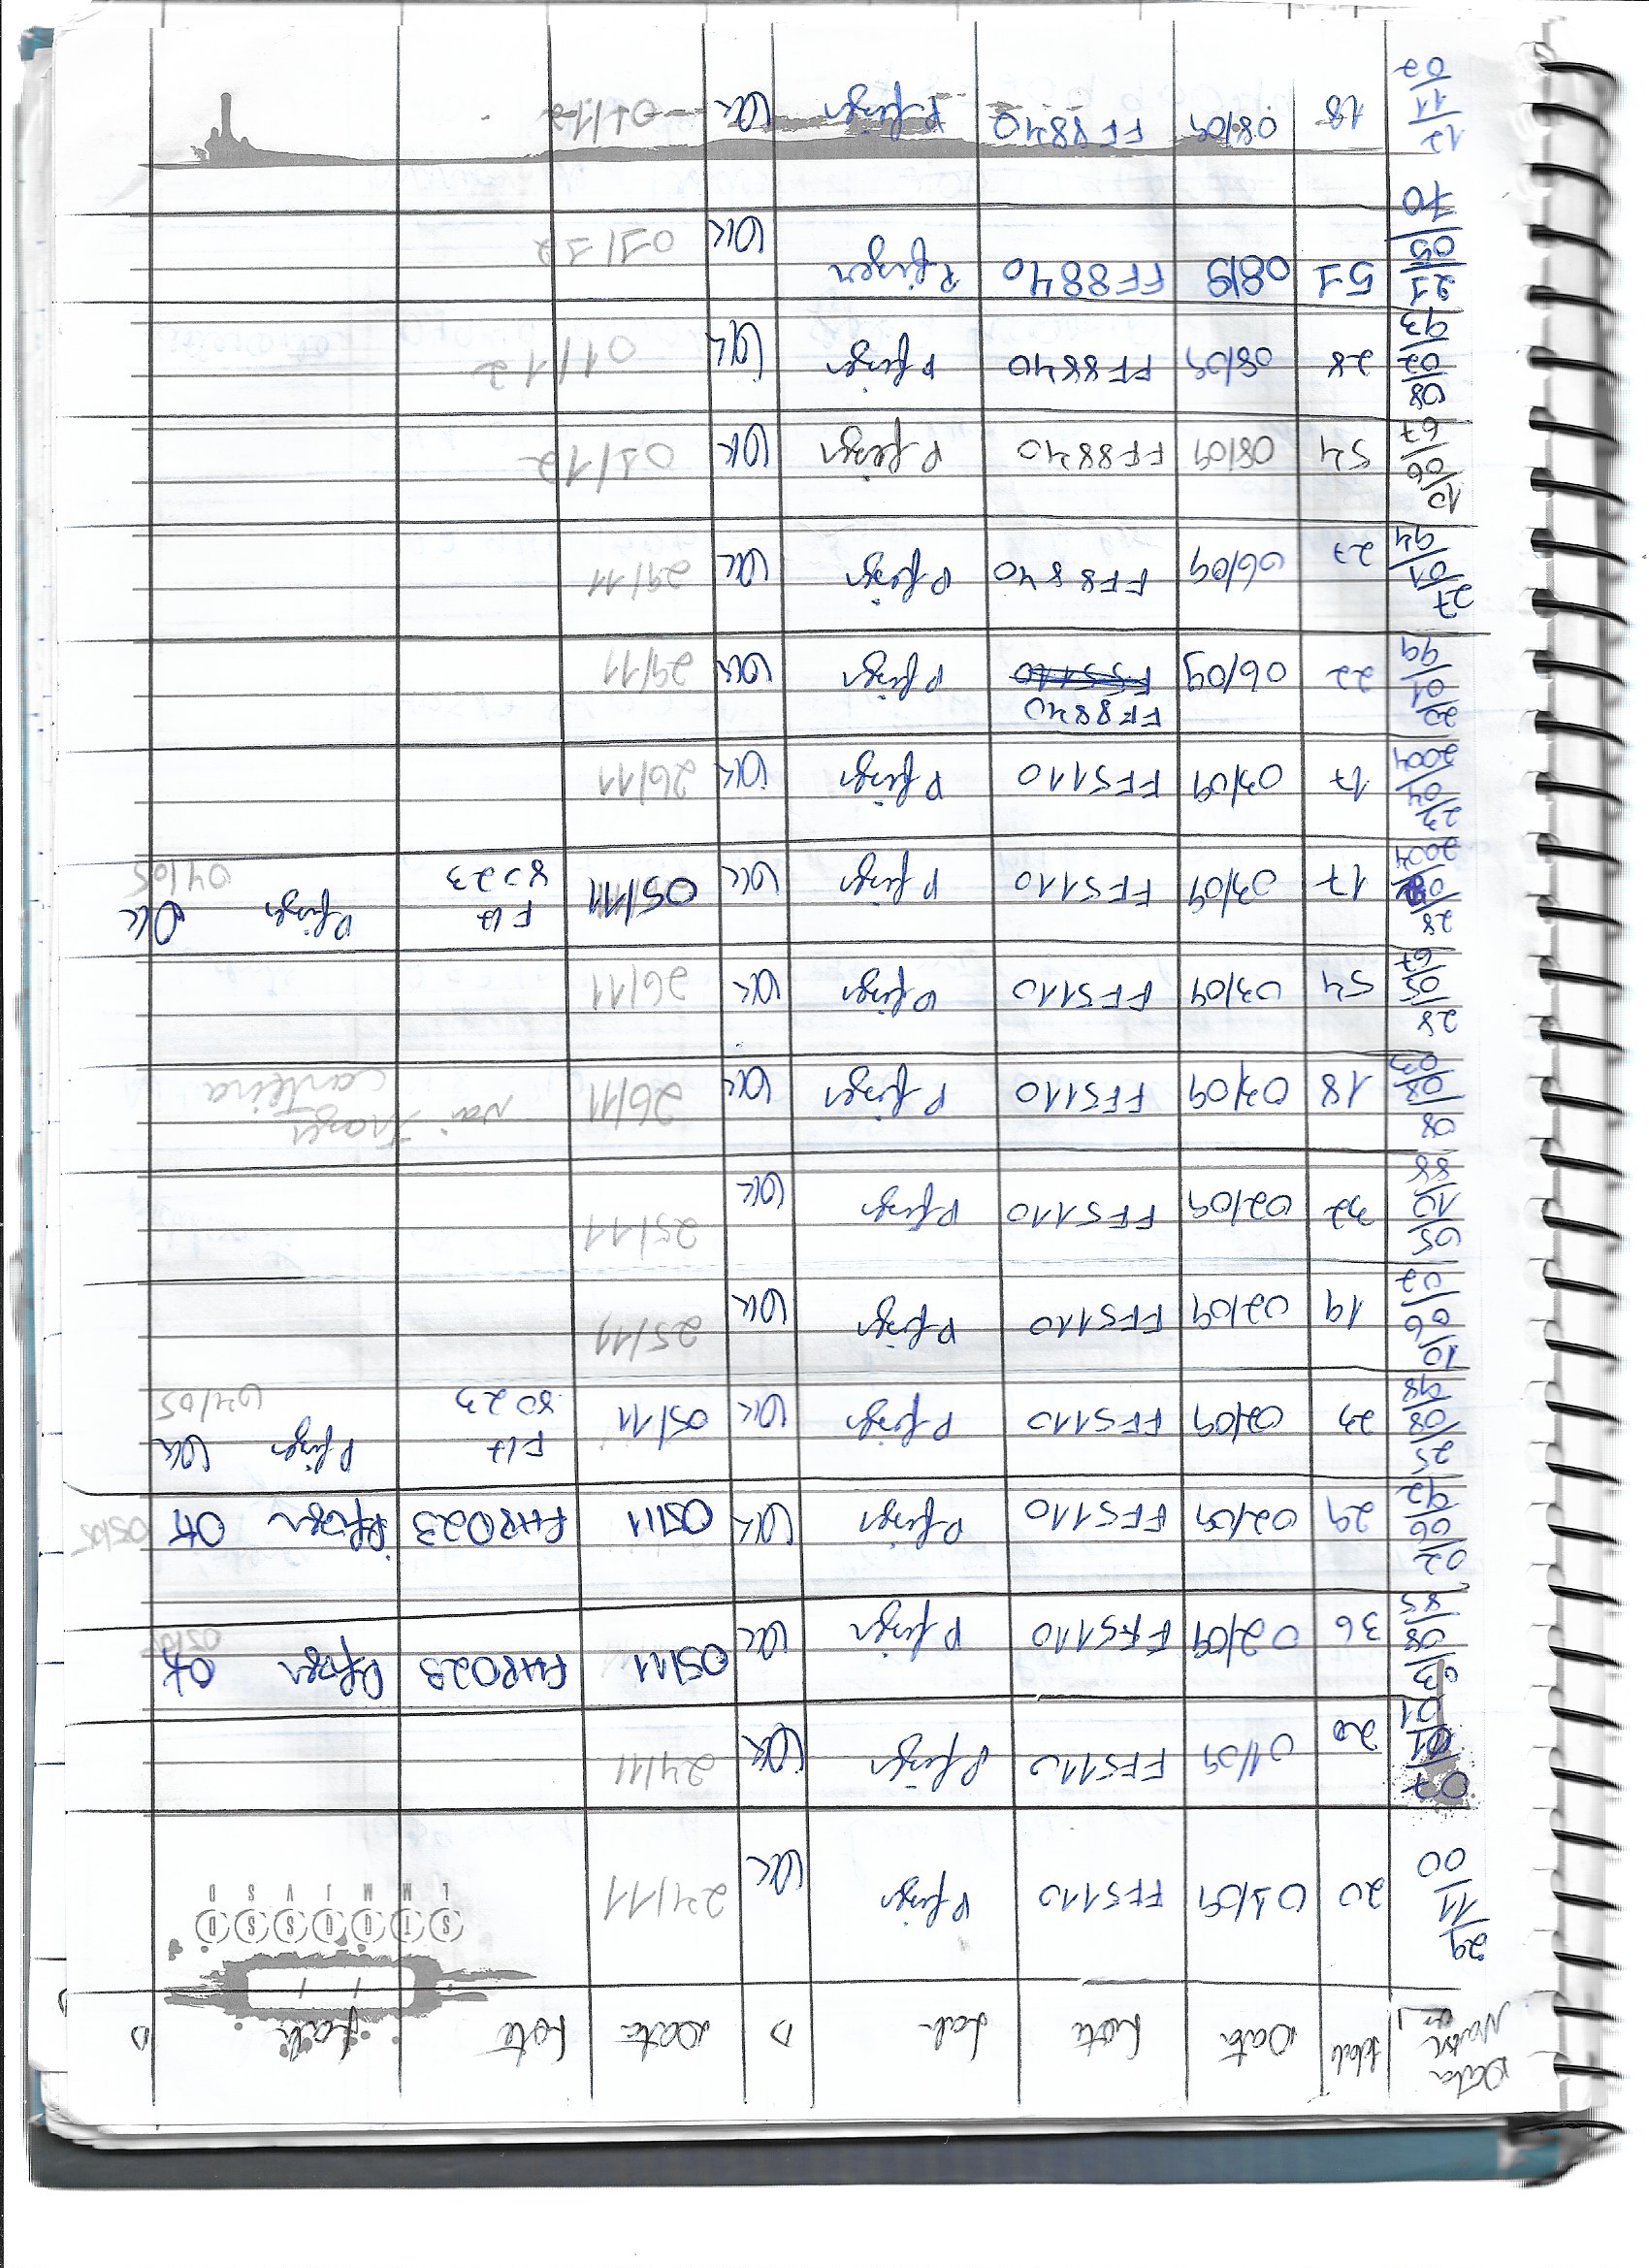 Data Nascer Idade Data Lote Lab D Data Lote Lab D
S T Q Q S S D
L M M J V S D
29/11/00 20 01/09 FF5110 Pfizer OK 24/11
07/01/01 20 01/09 FF5110 Pfizer OK 24/11
03/08/85 36 02/09 FF5110 Pfizer OK 05/11 FH8023 Pfizer OK
02/06/92 29 02/09 FF5110 Pfizer OK 05/11 FH8023 Pfizer OK 05/05
25/08/98 23 02/09 FF5110 Pfizer OK 05/11 FH 8023 Pfizer OK 04/05
10/06/02 19 02/09 FF5110 Pfizer OK 25/11
05/10/88 32 02/09 FF5110 Pfizer OK 25/11
08/08/03 18 03/09 FF5110 Pfizer OK 26/11 vai trazer carteira
28/05/67 54 03/09 FF5110 Pfizer OK 26/11
28 2004 17 03/09 FF5110 Pfizer OK 05/11 FH 8023 Pfizer OK 04/05
23/04/2004 17 03/09 FF5110 Pfizer OK 26/11
20/01/99 22 06/09 FF8840 FF5110 Pfizer OK 29/11
27/01/94 27 06/09 FF8840 Pfizer OK 29/11
10/06/67 54 08/09 FF8840 Pfizer OK 01/12
08/02/93 28 08/09 FF8840 Pfizer OK 01/12
21/05/70 51 08/9 FF8840 Pfizer OK 01/12
12/11/02 18 08/09 FF8840 Pfizer OK 01/12